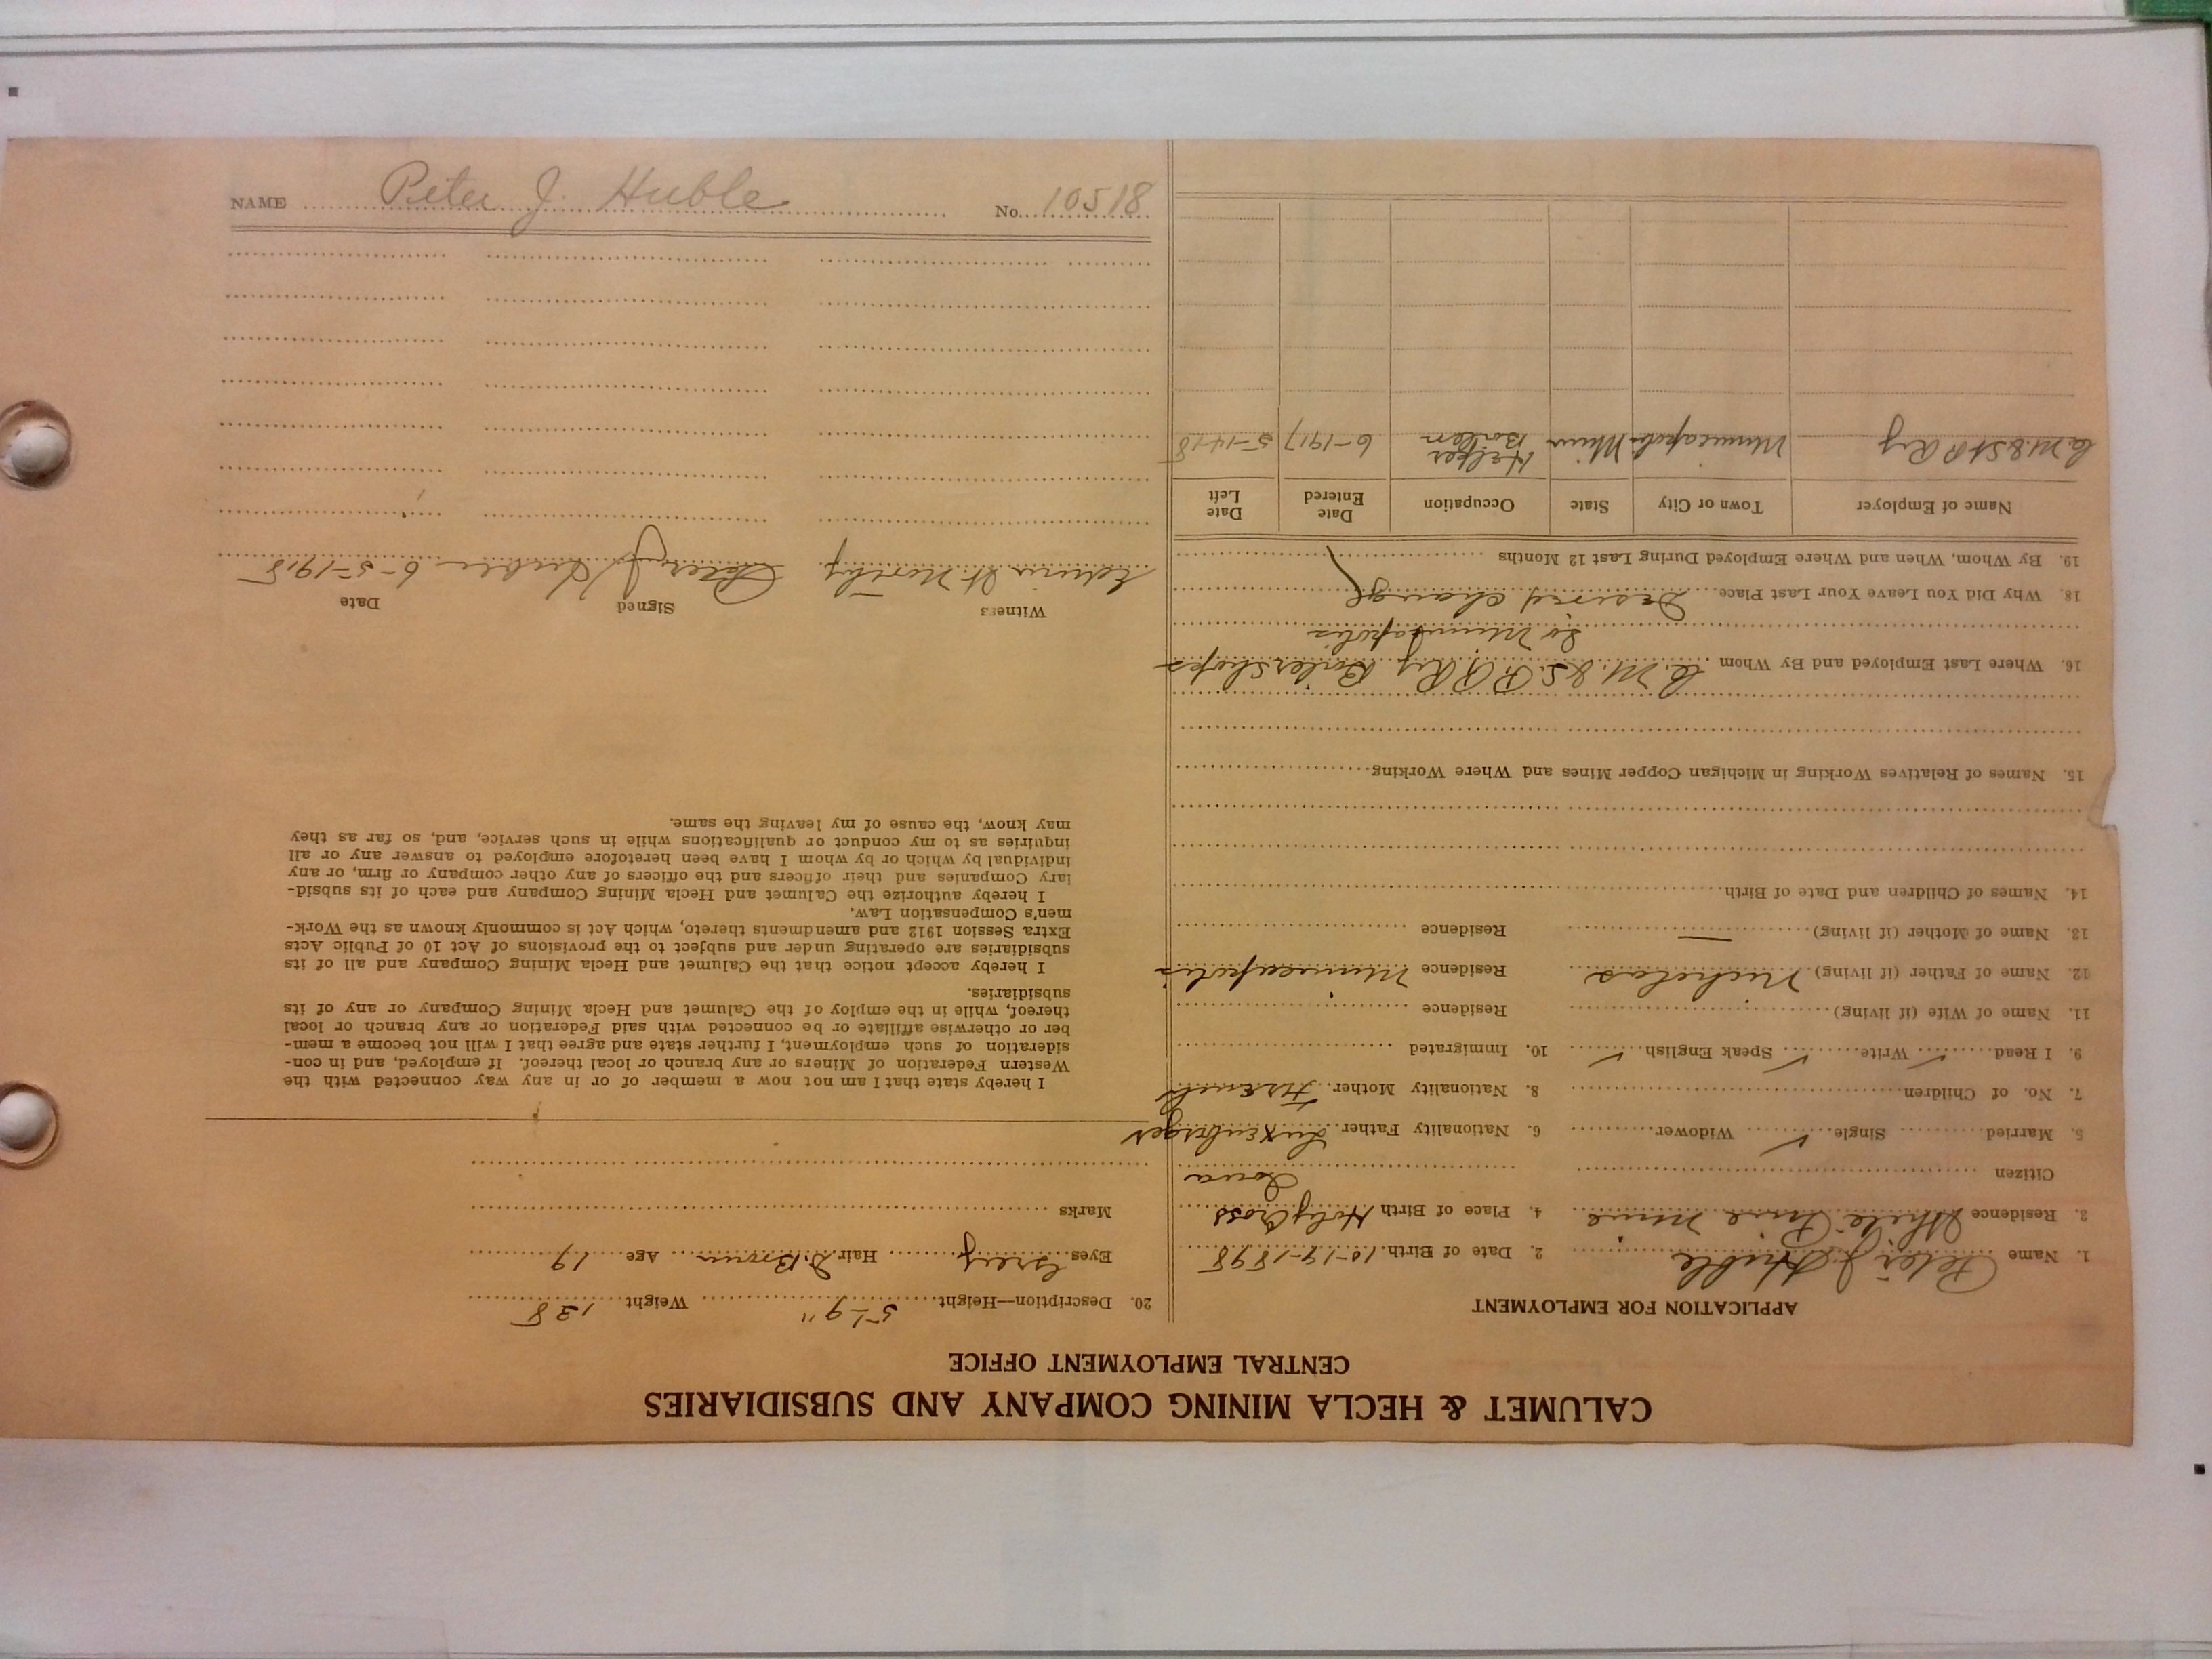 CALUMET & HECLA MINING COMPANY AND SUBSIDIARIES
CENTRAL EMPLOYMENT OFFICE
APPLICATION FOR EMPLOYMENT
1. Name Peter J Huble 2. Date of Birth 10-19-1898
3. Residence White Pine Mine 4. Place of Birth Holy Cross
Citizen Iowa
5. Married Single ✓ Widower 6. Nationality Father Luxenberger
7. No. of Children 8. Nationality Mother French
9. I Read ✓ Write ✓ Speak English ✓ 10. Immigrated
11. Name of Wife (if living) Residence
12. Name of Father (if living) Nicholas Residence Minneapolis
13. Name of Mother (if living) — Residence
14. Names of Children and Date of Birth
15. Names of Relatives Working in Michigan Copper Mines and Where Working
16. Where Last Employed and By Whom C. M. & S. P. Ry Boiler Shops
So Minneapolis
18. Why Did You Leave Your Last Place Desired change
19. By Whom, When and Where Employed During Last 12 Months
Name of Employer Town or City State Occupation Date Entered Date Left
C. M. & St P Ry Minneapolis Minn Helper Boiler 6-1917 5-14-18
20. Description—Height 5-9" Weight 138
Eyes Grey Hair D. Brown Age 19
Marks
I hereby state that I am not now a member of or in any way connected with the
Western Federation of Miners or any branch or local thereof. If employed, and in con-
sideration of such employment, I further state and agree that I will not become a mem-
ber or otherwise affiliate or be connected with said Federation or any branch or local
thereof, while in the employ of the Calumet and Hecla Mining Company or any of its
subsidiaries.
I hereby accept notice that the Calumet and Hecla Mining Company and all of its
subsidiaries are operating under and subject to the provisions of Act 10 of Public Acts
Extra Session 1912 and amendments thereto, which Act is commonly known as the Work-
men's Compensation Law.
I hereby authorize the Calumet and Hecla Mining Company and each of its subsid-
iary Companies and their officers and the officers of any other company or firm, or any
individual by which or by whom I have been heretofore employed to answer any or all
inquiries as to my conduct or qualifications while in such service, and, so far as they
may know, the cause of my leaving the same.
Witness Signed Date
Edwin W. Peter J Huble 6-5-1918
NAME Peter J. Huble No. 10518